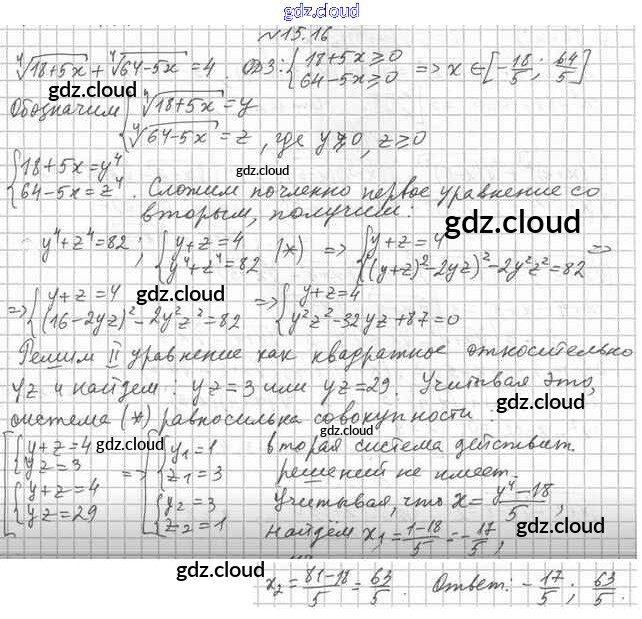 gdz.cloud
№15.16
⁴√(18+5x) + ⁴√(64-5x) = 4. ОДЗ: { 18+5x ⩾ 0 { 64-5x ⩾ 0 => x ∈ [-18/5; 64/5]
gdz.cloud
Обозначим { ⁴√(18+5x) = y { ⁴√(64-5x) = z, где y ⩾ 0, z ⩾ 0
gdz.cloud
{ 18+5x = y⁴ { 64-5x = z⁴. Сложим почленно первое уравнение со
вторым, получим:
gdz.cloud
y⁴+z⁴=82; { y+z=4 { y⁴+z⁴=82 (*) => { y+z=4 { ((y+z)²-2yz)²-2y²z²=82 =>
gdz.cloud
=> { y+z=4 { (16-2yz)²-2y²z²=82 => { y+z=4 { y²z²-32yz+87=0
gdz.cloud
Решим II уравнение как квадратное относительно
yz и найдем: yz=3 или yz=29. Учитывая это,
gdz.cloud
система (*) равносильна совокупности
gdz.cloud
[ { y+z=4 { yz=3 { y+z=4 { yz=29 => [ { y₁=1 { z₁=3 { y₂=3 { z₂=1
вторая система действит.
решений не имеет.
gdz.cloud
Учитывая, что x = (y⁴-18)/5,
gdz.cloud
найдём x₁ = (1-18)/5 = -17/5,
gdz.cloud
x₂ = (81-18)/5 = 63/5. Ответ: -17/5; 63/5.
gdz.cloud